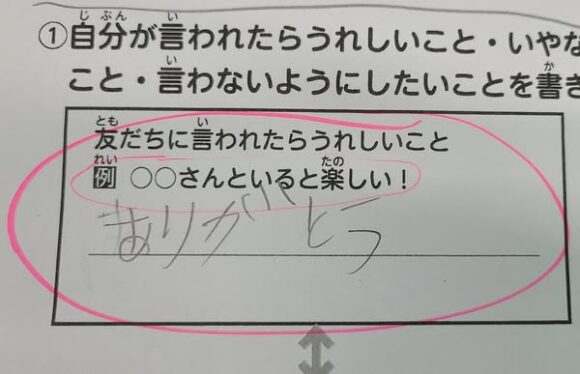 ①自分が言われたらうれしいこと・いやな
こと・言わないようにしたいことを書き
友だちに言われたらうれしいこと
例 ○○さんといると楽しい！
ありがとう